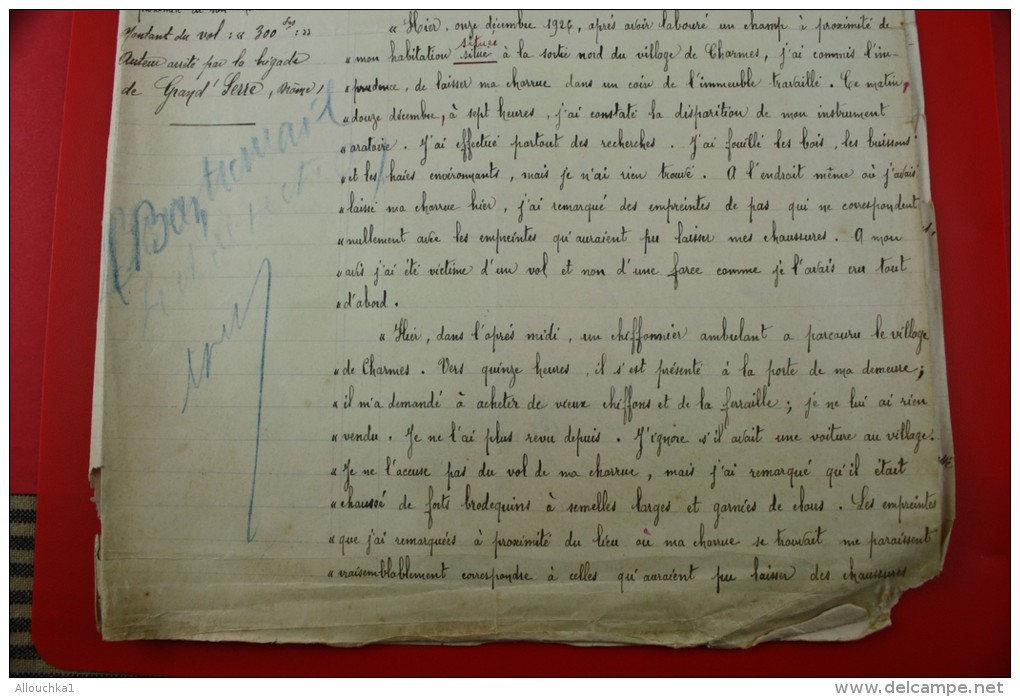 Montant du vol : « 300 frs : »
Auteur arrêté par la brigade
de Grand' Serre, (Drôme)
« Hier, onze décembre 1926, après avoir labouré un champ à proximité de
située
« mon habitation située à la sortie nord du village de Charmes, j'ai commis l'im-
« prudence, de laisser ma charrue dans un coin de l'immeuble travaillé. Ce matin,
« douze décembre, à sept heures, j'ai constaté la disparition de mon instrument
« aratoire. J'ai effectué partout des recherches. J'ai fouillé les bois, les buissons
« et les haies environnants, mais je n'ai rien trouvé. A l'endroit même où j'avais
« laissé ma charrue hier, j'ai remarqué des empreintes de pas qui ne correspondent
« nullement avec les empreintes qu'auraient pu laisser mes chaussures. A mon
« avis j'ai été victime d'un vol et non d'une farce comme je l'avais cru tout
« d'abord.
« Hier, dans l'après midi, un chiffonnier ambulant a parcouru le village
« de Charmes. Vers quinze heures, il s'est présenté à la porte de ma demeure ;
« il m'a demandé à acheter de vieux chiffons et de la ferraille ; je ne lui ai rien
« vendu. Je ne l'ai plus revu depuis. J'ignore s'il avait une voiture au village.
« Je ne l'accuse pas du vol de ma charrue, mais j'ai remarqué qu'il était
« chaussé de forts brodequins à semelles larges et garnies de clous. Les empreintes
« que j'ai remarquées à proximité du lieu où ma charrue se trouvait me paraissent
« vraisemblablement correspondre à celles qu'auraient pu laisser des chaussures
Allouchka1
www.delcampe.net